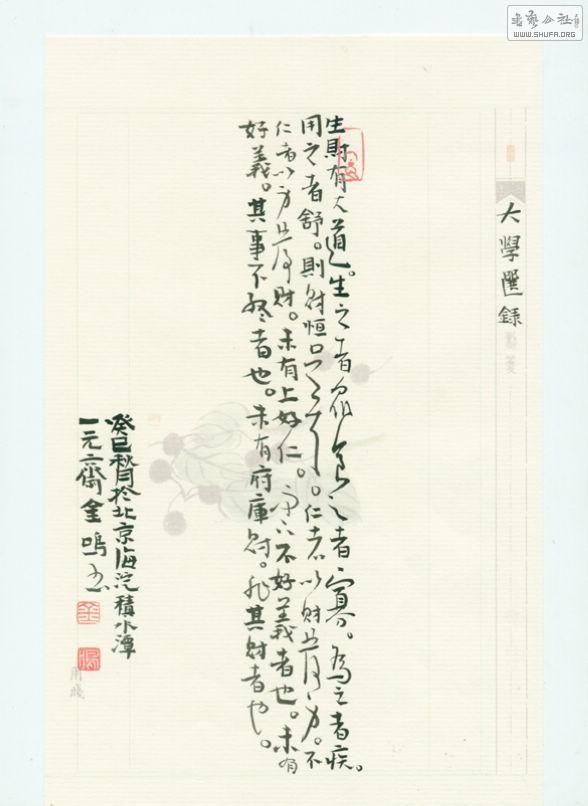 書藝公社
WWW.SHUFA.ORG
大學匯錄
生財有大道。生之者眾食之者寡。為之者疾。
用之者舒。則財恒足矣。仁者以財發身。不
仁者以身發財。未有上好仁。而下不好義者也。未有
好義。其事不終者也。未有府庫財。非其財者也。
癸巳秋月於北京海淀積水潭
一元齋金鳴書